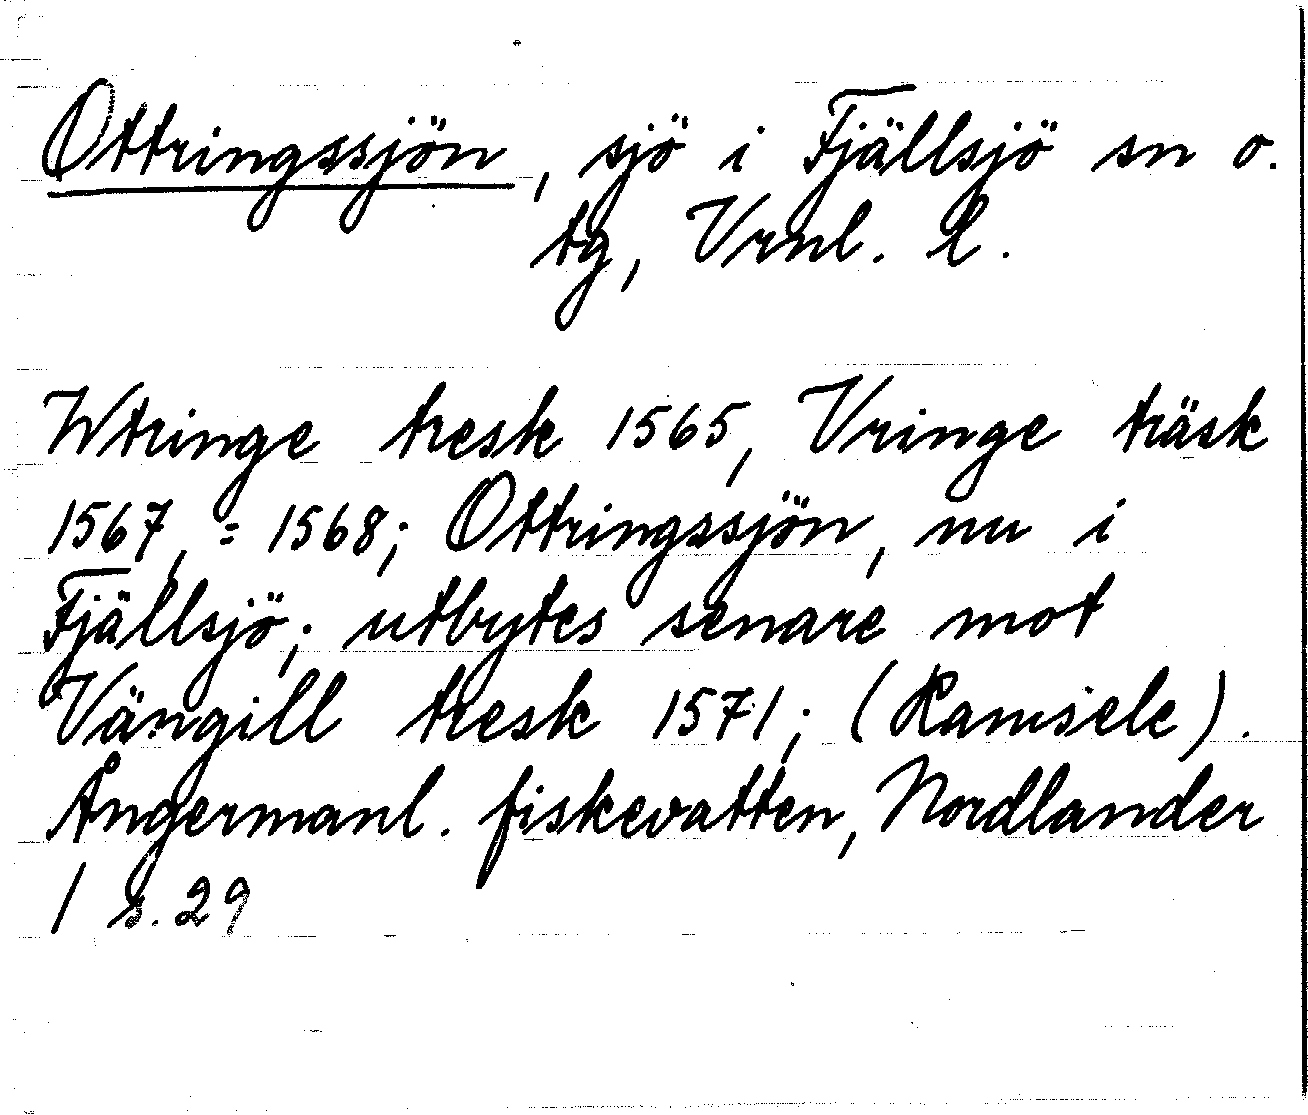 Ottringssjön, sjö i Fjällsjö sn o.
tg, Vrnl. l.
Wtringe tresk 1565, Vringe träsk
1567, = 1568; Ottringssjön, nu i
Fjällsjö; utbytes senare mot
Vängill tresk 1571; (Ramsele).
Ångermanl. fiskevatten, Nordlander
1 s. 29